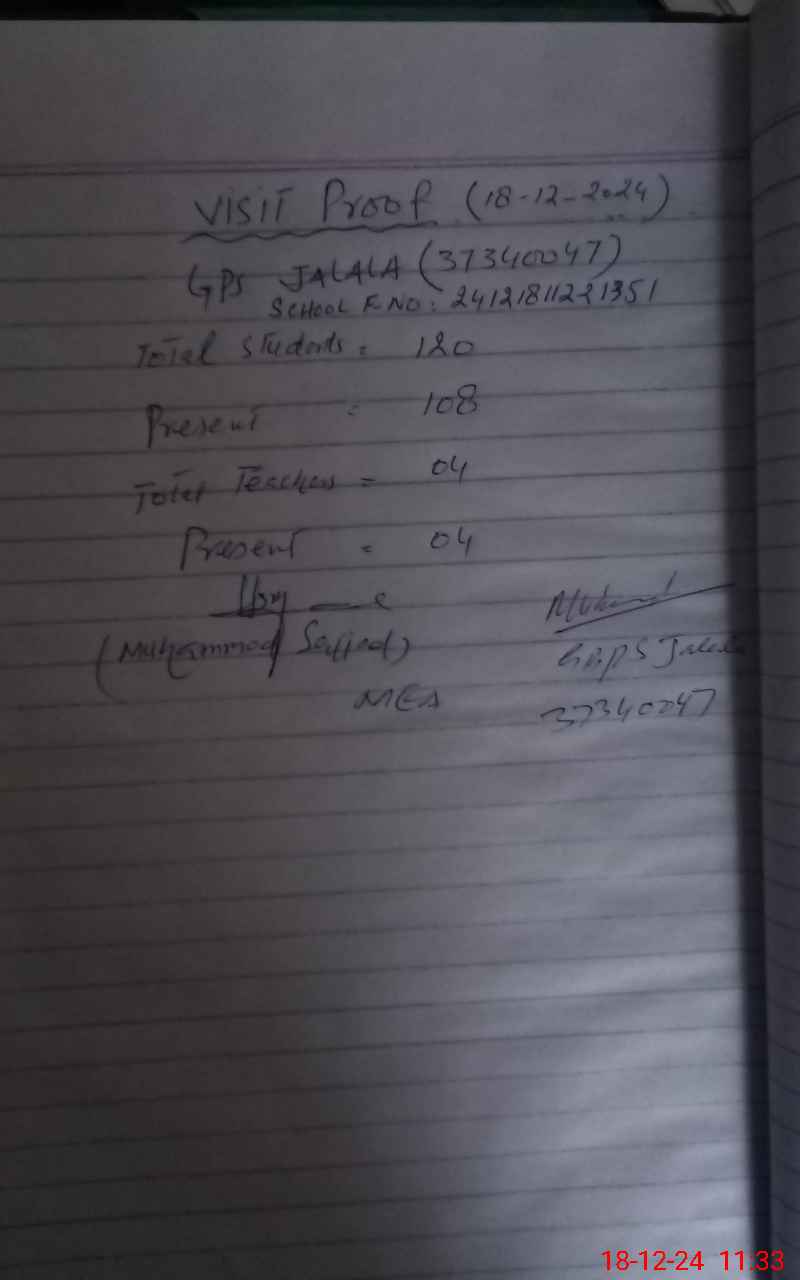 VISIT Proof (18-12-2024)
GPS JALALA (37340047)
SCHOOL F.NO: 24121811221351
Total Students = 120
Present = 108
Total Teachers = 04
Present = 04
(Muhammad Sajjad)
MEA
GPS Jalala
37340047
18-12-24 11:33